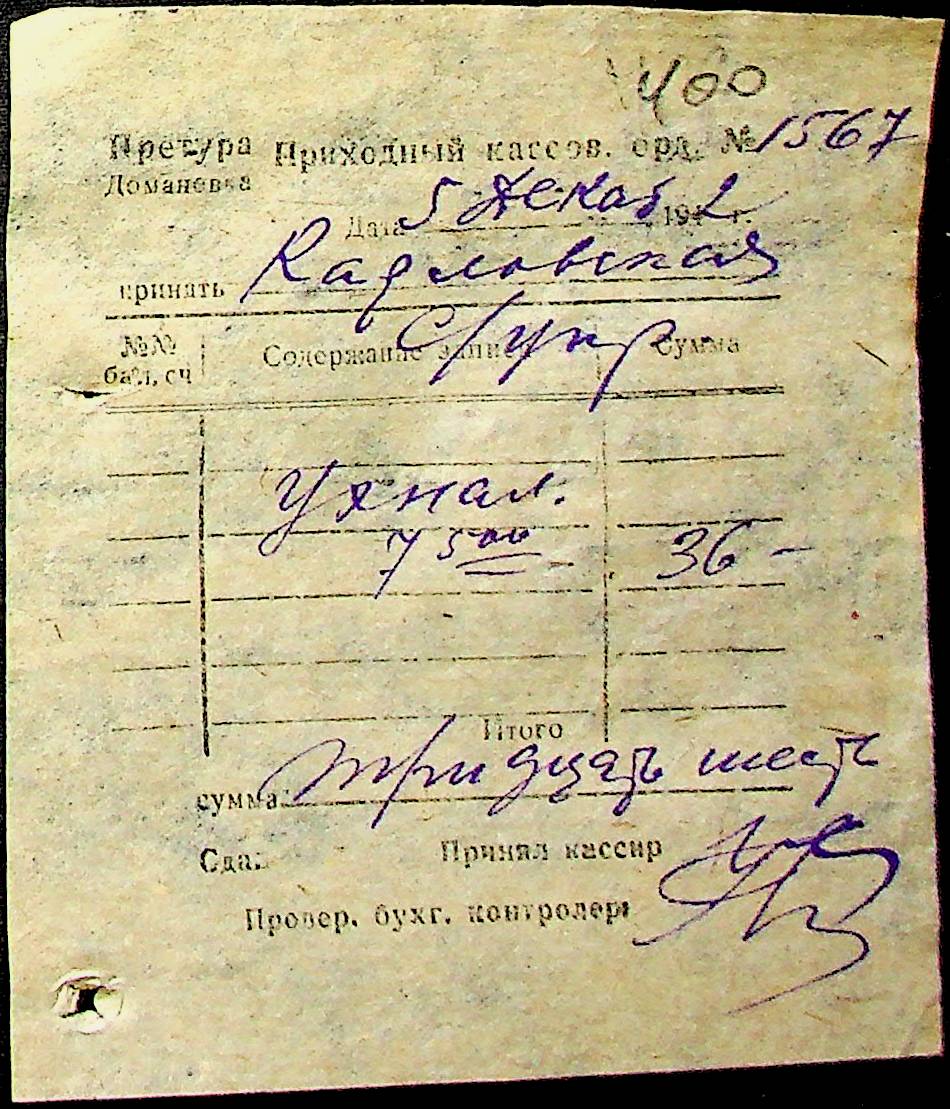 400
Претура Приходный кассов. орд. № 1567
Доманевка
Дата 5 декаб 194 2 г.
принять Кадловская
С/укр
№№ Содержание записи Сумма
бал. сч
Ухнал.
7 5⁰⁰ 36 —
Итого
сумма: тридцать шесть
Сдал Принял кассир
Провер. бухг. контролер